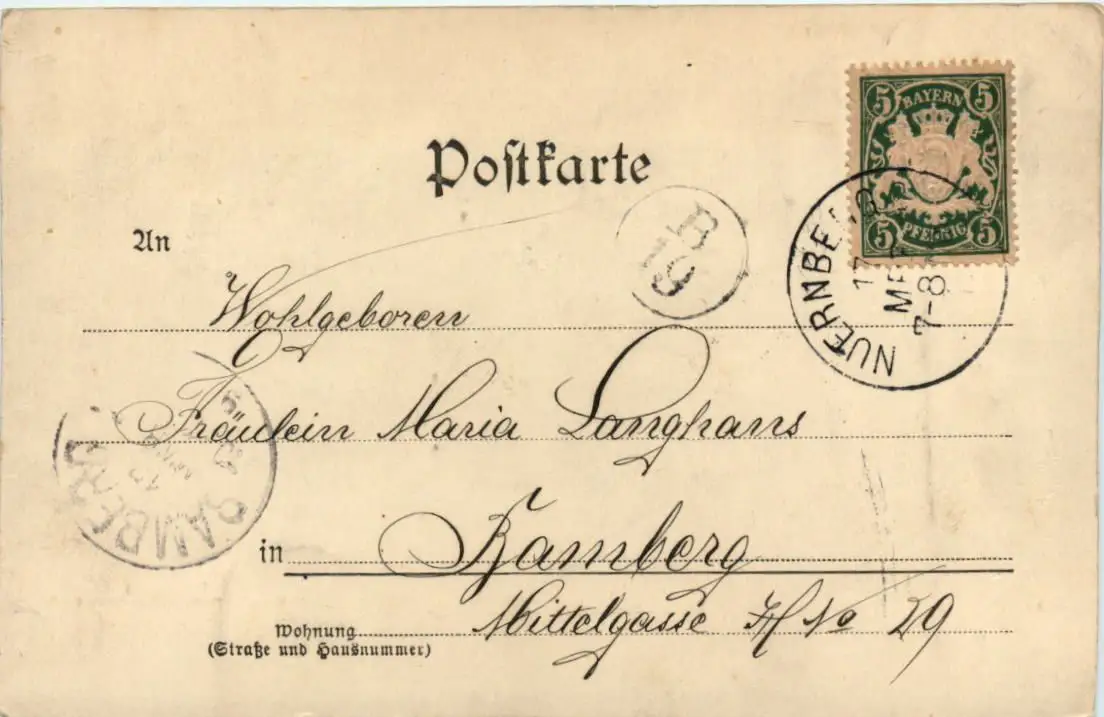 5 BAYERN 5
5 PFENNIG 5
Poſtkarte
An
B
19
NUERNBERG
7-8
Wohlgeboren
Fräulein Maria Langhans
BAMBERG
in Bamberg
Wohnung Mittelgasse H No 29
(Straße und Hausnummer)